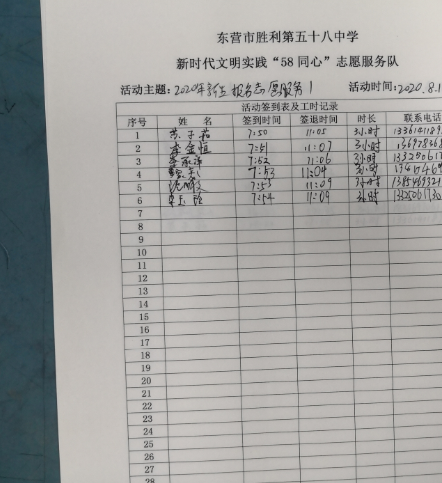 东营市胜利第五十八中学
新时代文明实践“58同心”志愿服务队
活动主题：2020年新生报名志愿服务 活动时间：2020.8.1
活动签到表及工时记录
序号 姓 名 签到时间 签退时间 时长 联系电话
1 苏子茹 7:50 11:05 3小时
2 李金恒 7:51 11:07 3小时
3 7:52 11:06 3小时
4 7:53 11:09 3小时
5 7:53 11:09 3小时
6 7:54 11:09 3小时
7
8
9
10
11
12
13
14
15
16
17
18
19
20
21
22
23
24
25
26
27
28